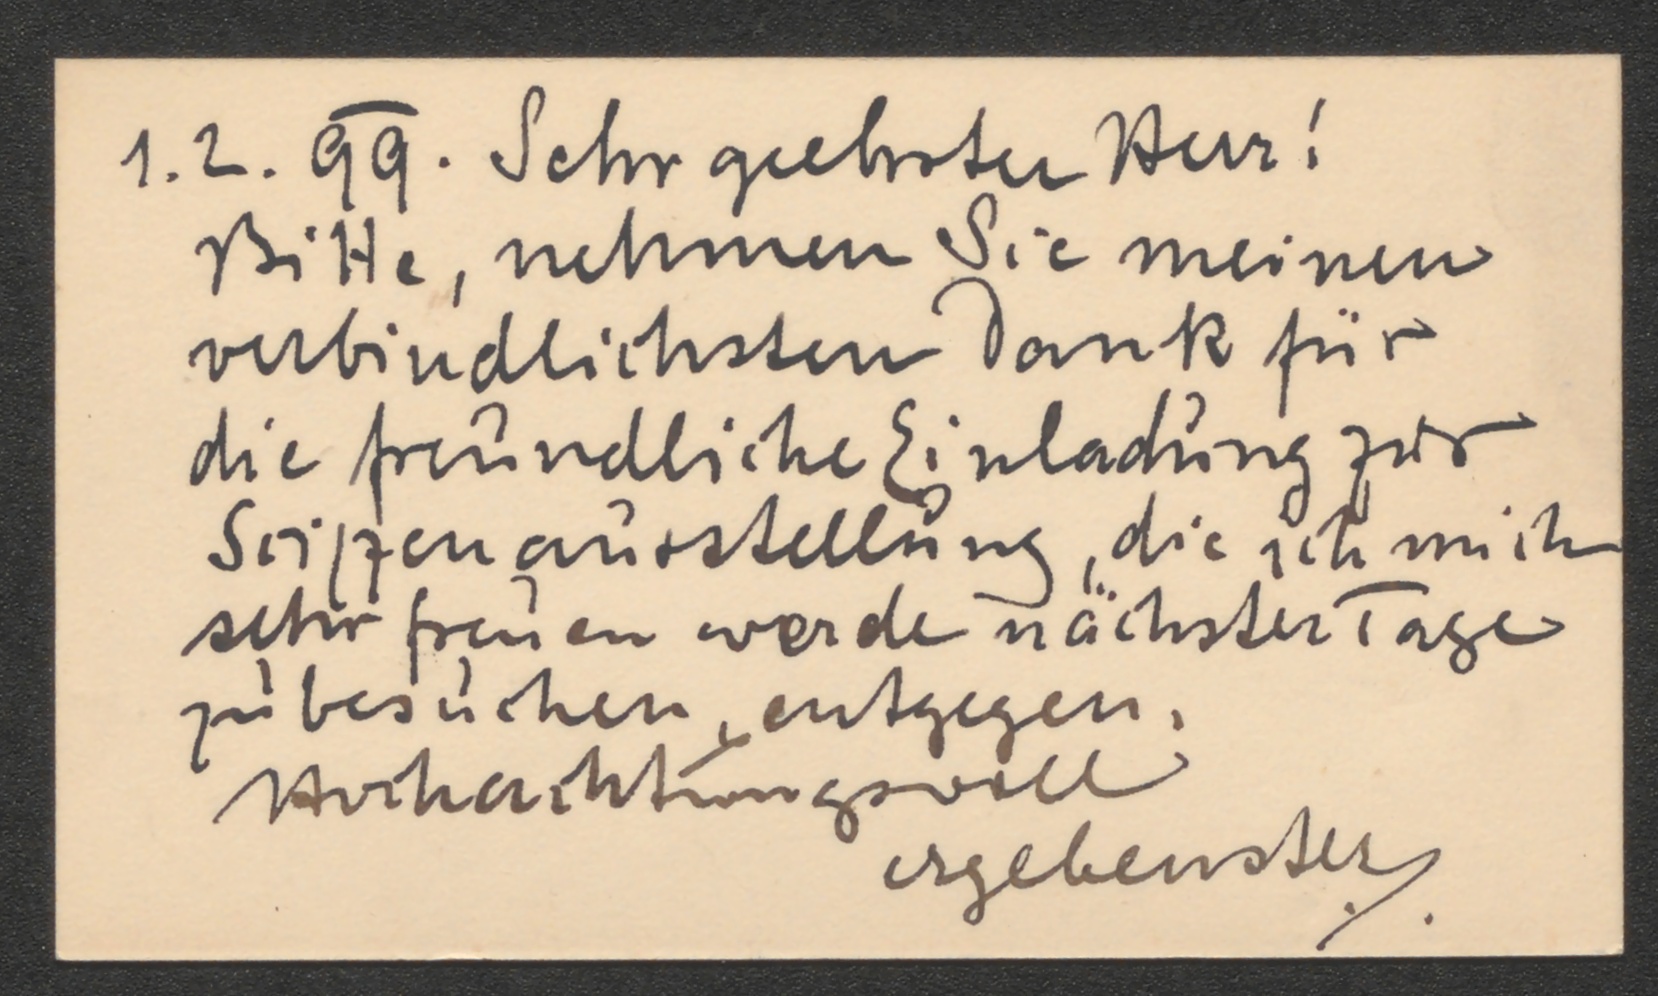 1.2.99. Sehr geehrter Herr!
Bitte, nehmen Sie meinen
verbindlichsten Dank für
die freundliche Einladung zur
ausstellung, die ich mich
sehr freuen werde nächster Tage
zu besuchen, entgegen.
Hochachtungsvoll
ergebenster